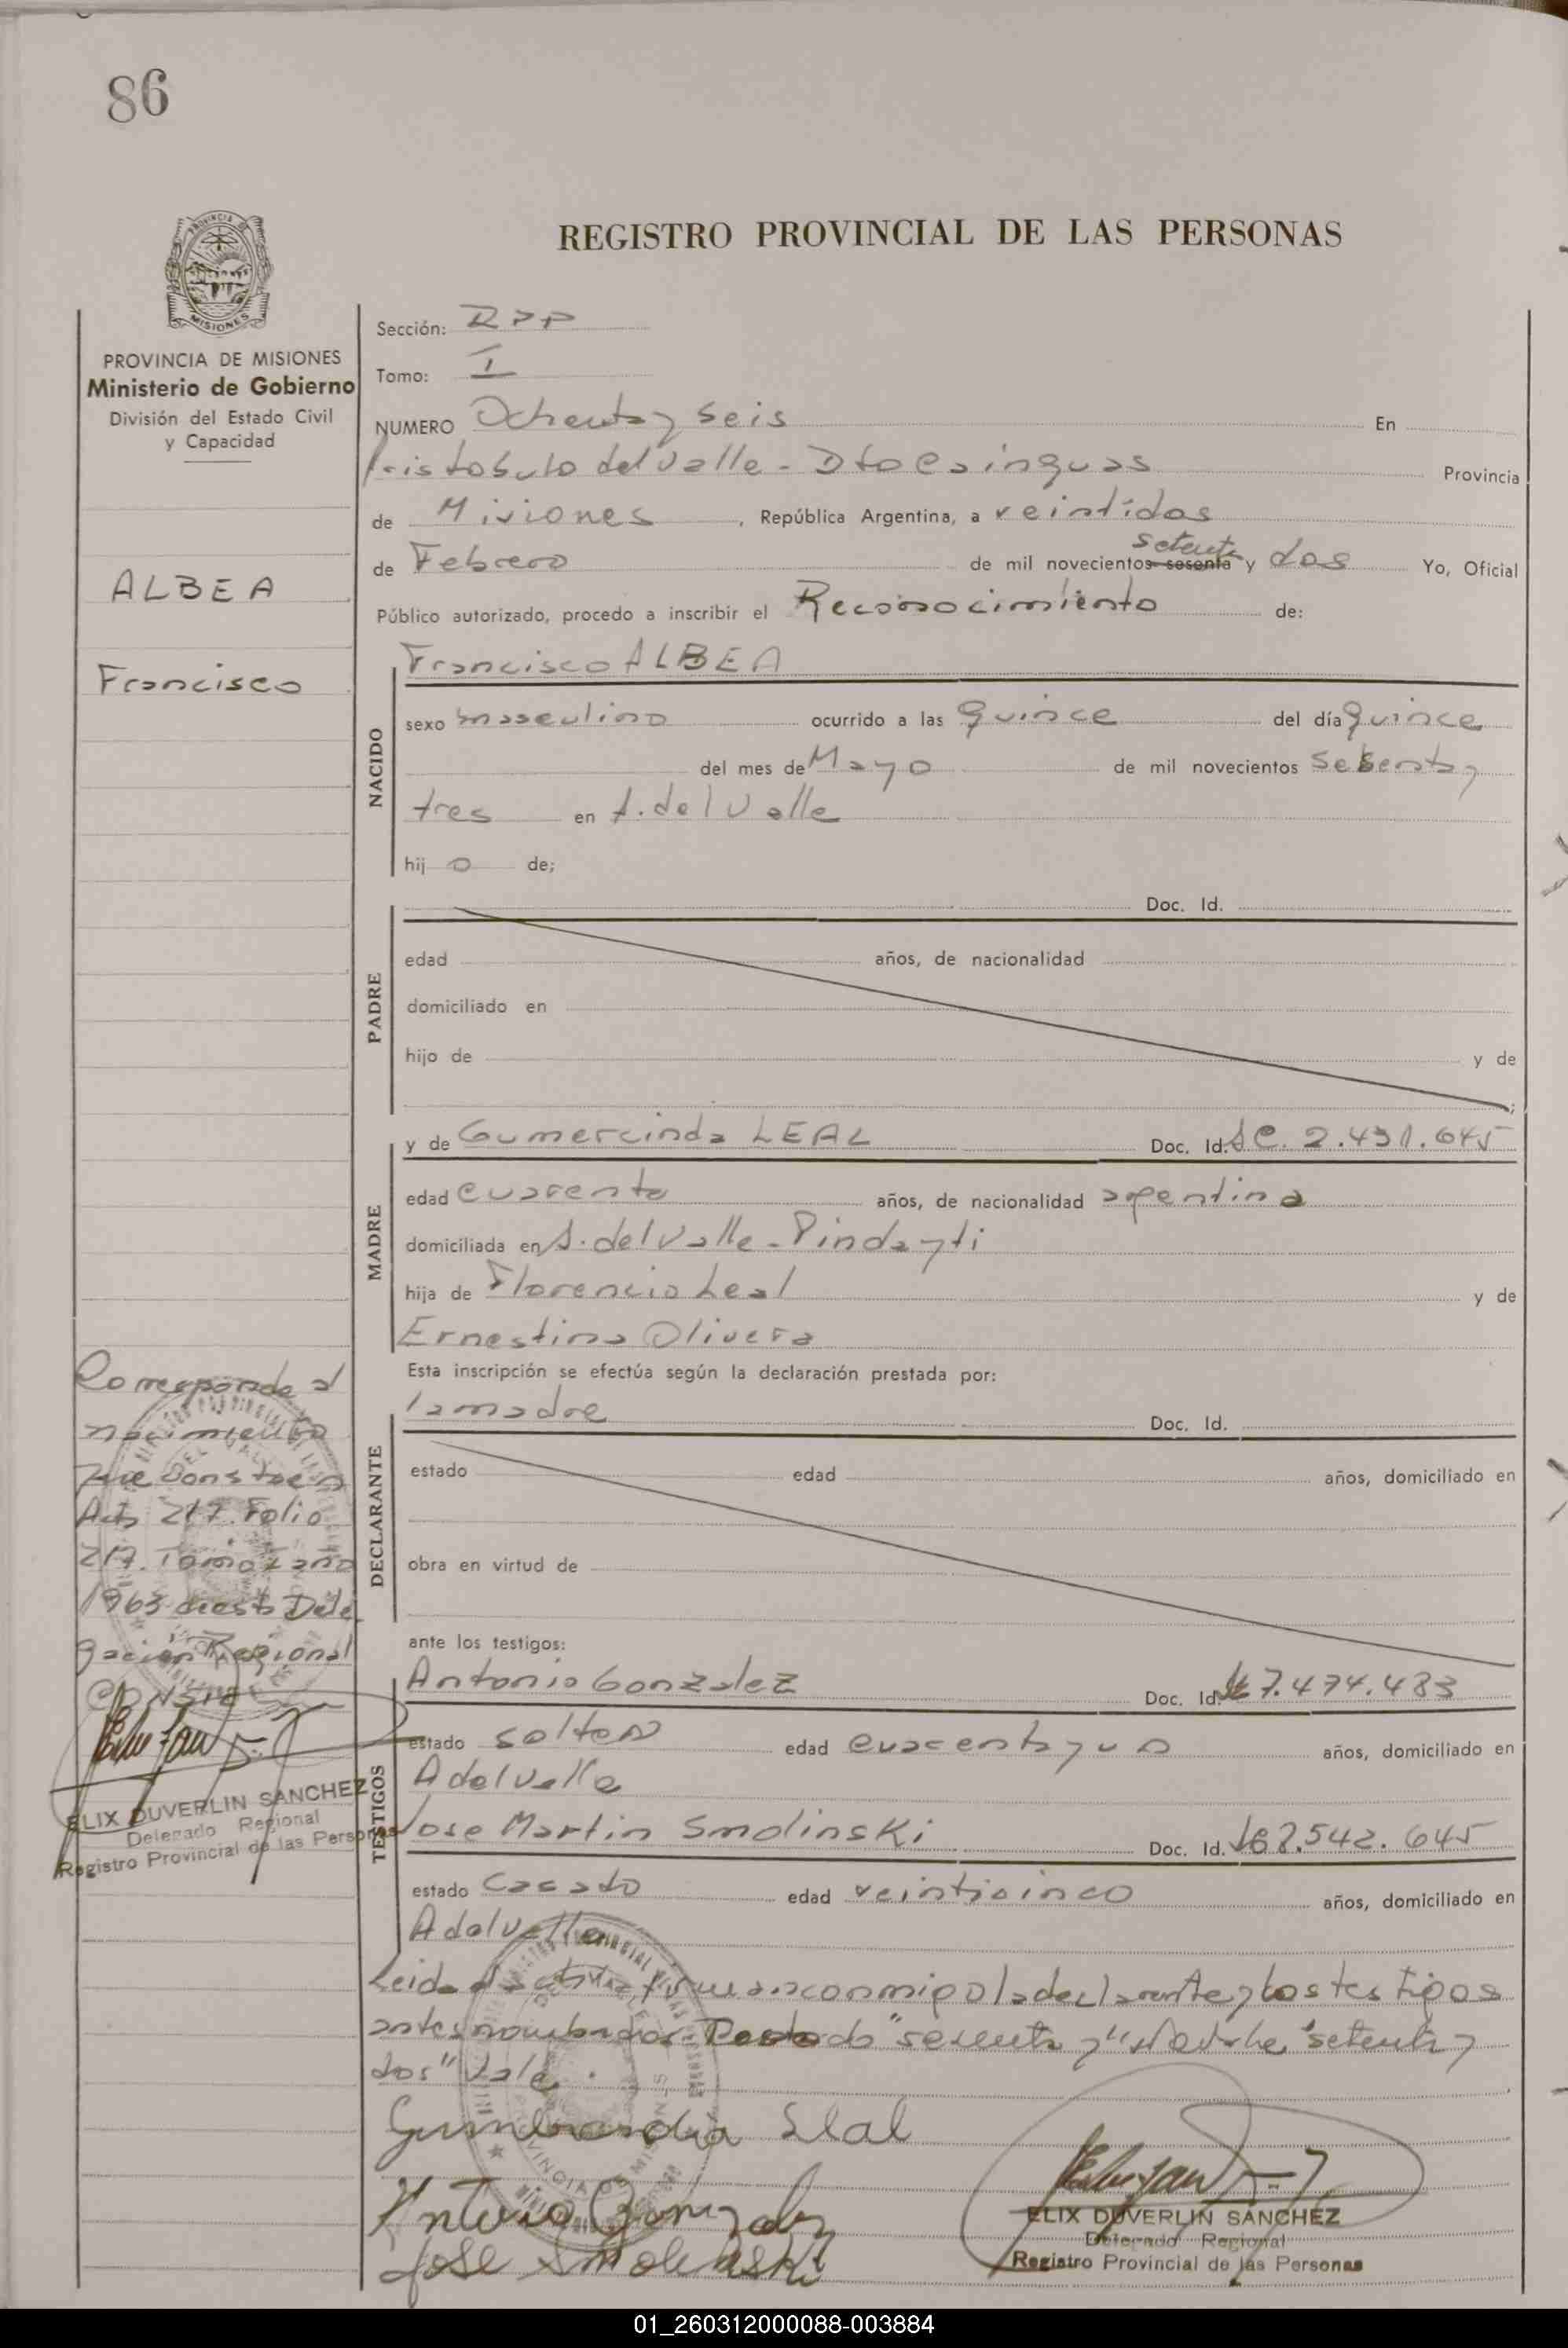 86
REGISTRO PROVINCIAL DE LAS PERSONAS
MISIONES
PROVINCIA DE MISIONES
Ministerio de Gobierno
División del Estado Civil
y Capacidad
ALBEA
Francisco
Corresponde al
nacimiento
que Consta en
Acta 217. Folio
217. Tomo I año
1963 de esta Dele
gación Regional
Conste
ELIX DUVERLIN SANCHEZ
Delegado Regional
Registro Provincial de las Personas
Sección: RPP
Tomo: I
NUMERO Ochenta y Seis En
Aristobulo del Valle - Dto Cainguas Provincia
de Misiones, República Argentina, a veintidos
de Febrero de mil novecientos sesenta setenta y dos Yo, Oficial
Público autorizado, procedo a inscribir el Reconocimiento de:
NACIDO
Francisco ALBEA
sexo masculino ocurrido a las quince del día quince
del mes de Mayo de mil novecientos sesenta y
tres en A. del Valle
hijo de;
PADRE
Doc. Id.
edad años, de nacionalidad
domiciliado en
hijo de y de
MADRE
y de Gumercinda LEAL Doc. Id. LC. 2.431.645
edad cuarenta años, de nacionalidad argentina
domiciliada en A. del Valle - Pindayti
hija de Florencio Leal y de
Ernestina Olivera
Esta inscripción se efectúa según la declaración prestada por:
DECLARANTE
la madre Doc. Id.
estado edad años, domiciliado en
obra en virtud de
ante los testigos:
TESTIGOS
Antonio Gonzalez Doc. Id. LE 7.474.483
estado soltero edad cuarenta y un años, domiciliado en
A del Valle
Jose Martin Smolinski Doc. Id. LE 8.542.645
estado Casado edad veinticinco años, domiciliado en
A del Valle
Leida el acta firman conmigo la declarante y los testigos
antes nombrados Testado "sesenta y" setenta y
dos" Vale
Leal
Antonio Gonzalez
Jose Smolinski
ELIX DUVERLIN SANCHEZ
Delegado Regional
Registro Provincial de las Personas
01_260312000088-003884